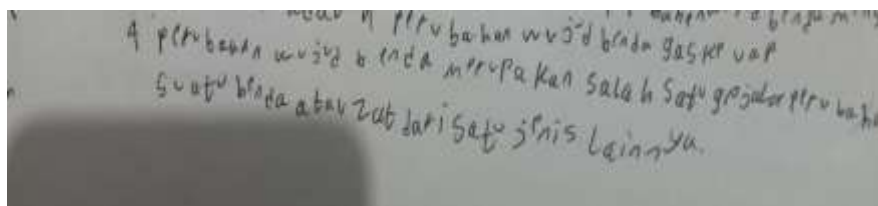 perubahan wujud benda gas ke uap
4 perubahan wujud benda merupakan salah satu gejala perubaha
suatu benda atau zat dari satu jenis lainnya.